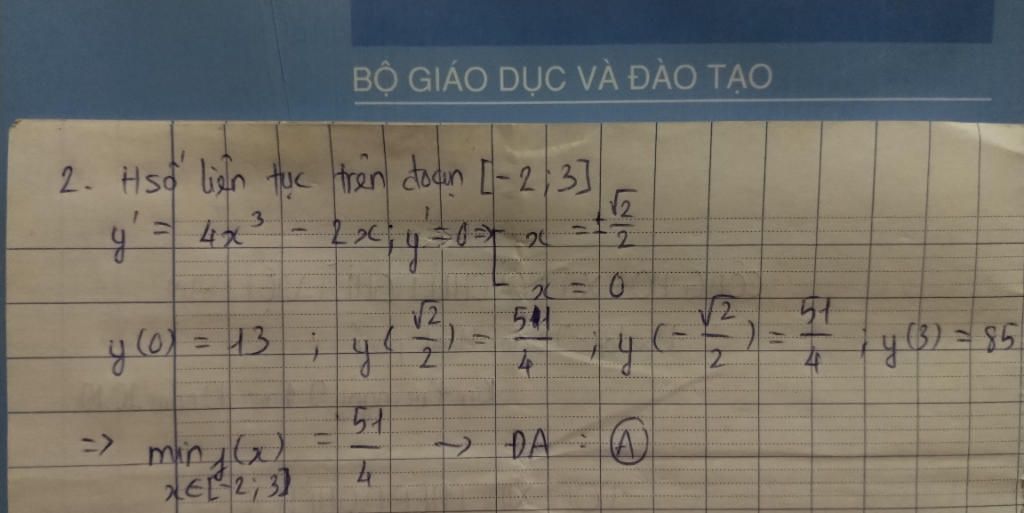 BỘ GIÁO DỤC VÀ ĐÀO TẠO
2. Hsố liên tục trên đoạn [-2; 3]
y' = 4x³ - 2x; y' = 0 => [ x = ±√2/2
x = 0
y(0) = 13 ; y(√2/2) = 51/4 ; y(-√2/2) = 51/4 ; y(3) = 85
=> min y(x) = 51/4 → ĐA : A
x∈[-2; 3]